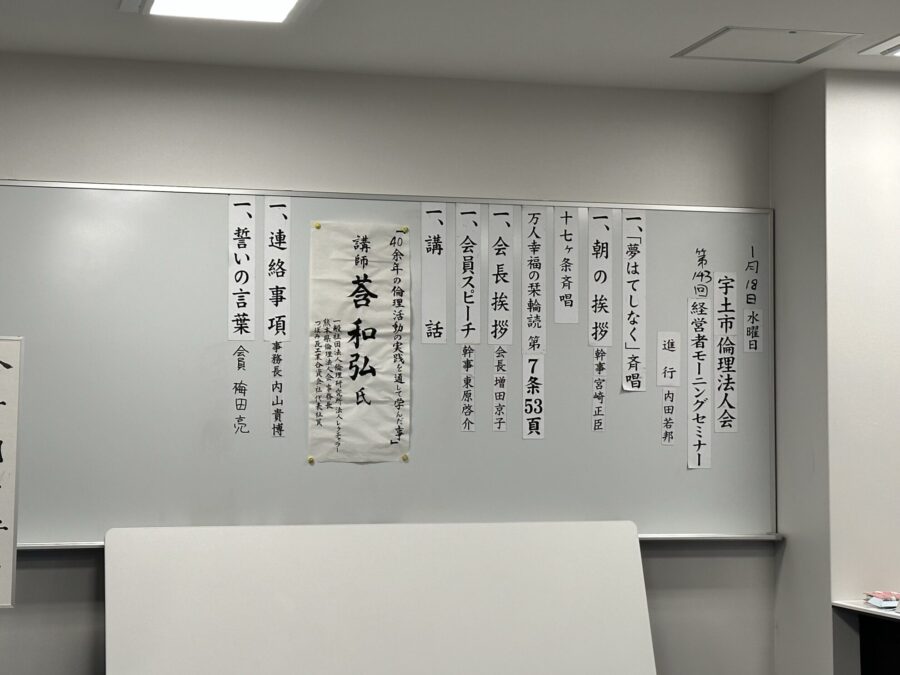 1月18日 水曜日
宇土市倫理法人会
第143回 経営者モーニングセミナー
進行 内田若邦
一、「夢はてしなく」斉唱
一、朝の挨拶 幹事 宮崎正臣
十七ヶ条斉唱
万人幸福の栞輪読 第7条53頁
一、会長挨拶 会長 増田京子
一、会員スピーチ 幹事 東原啓介
一、講話
「40余年の倫理活動の実践を通して学んだ事」
講師 莟 和弘 氏
一般社団法人倫理研究所法人レクチャラー
熊本県倫理法人会事務長
一、連絡事項 事務長 内山貴博
一、誓いの言葉 会員 梅田亮